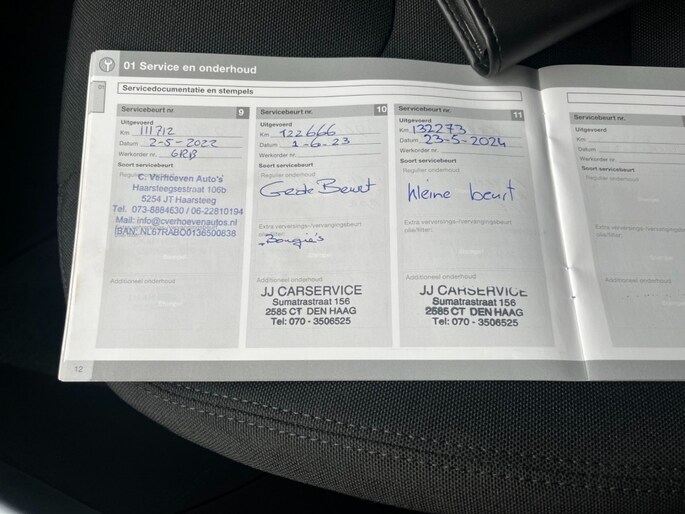 01 Service en onderhoud
01
Servicedocumentatie en stempels
Servicebeurt nr. 9
Uitgevoerd
Km 111712
Datum 2-5-2022
Werkorder nr. GRB
Soort servicebeurt
Regulier onderhoud
C. Verhoeven Auto's
Haarsteegsestraat 106b
5254 JT Haarsteeg
Tel. 073-8884630 / 06-22810194
Mail: info@cverhoevenautos.nl
IBAN: NL67RABO0136500838
Additioneel onderhoud
Servicebeurt nr. 10
Uitgevoerd
Km 122666
Datum 1-6-23
Werkorder nr.
Soort servicebeurt
Regulier onderhoud
Grote Beurt
Extra verversings-/vervangingsbeurt
olie/filter:
Bougie's
Additioneel onderhoud
JJ CARSERVICE
Sumatrastraat 156
2585 CT DEN HAAG
Tel: 070 - 3506525
Servicebeurt nr. 11
Uitgevoerd
Km 132273
Datum 23-5-2024
Werkorder nr.
Soort servicebeurt
Regulier onderhoud
kleine beurt
Extra verversings-/vervangingsbeurt
olie/filter:
Additioneel onderhoud
JJ CARSERVICE
Sumatrastraat 156
2585 CT DEN HAAG
Tel: 070 - 3506525
Servicebeurt nr.
Uitgevoerd
Km
Datum
Werkorder nr.
Soort servicebeurt
Regulier onderhoud
12